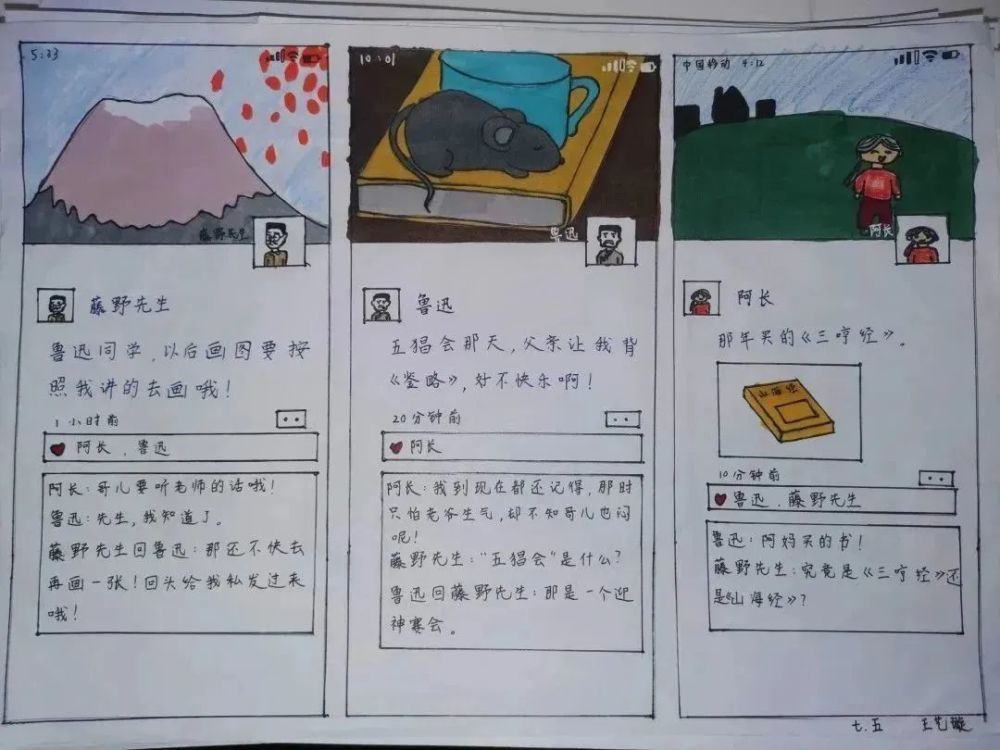 5:33
藤野先生
藤野先生
鲁迅同学，以后画图要按
照我讲的去画哦！
1小时前
阿长，鲁迅
阿长：哥儿要听老师的话哦！
鲁迅：先生，我知道了。
藤野先生回鲁迅：那还不快去
再画一张！回头给我私发过来
哦！
10:01
鲁迅
鲁迅
五猖会那天，父亲让我背
《鉴略》，好不快乐啊！
20分钟前
阿长
阿长：我到现在都还记得，那时
只怕老爷生气，却不知哥儿也闷
呢！
藤野先生："五猖会"是什么？
鲁迅回藤野先生：那是一个迎
神赛会。
中国移动 4:12
阿长
阿长
那年买的《三哼经》。
山海经
10分钟前
鲁迅，藤野先生
鲁迅：阿妈买的书！
藤野先生：究竟是《三哼经》还
是《山海经》？
七.五 王艺璇